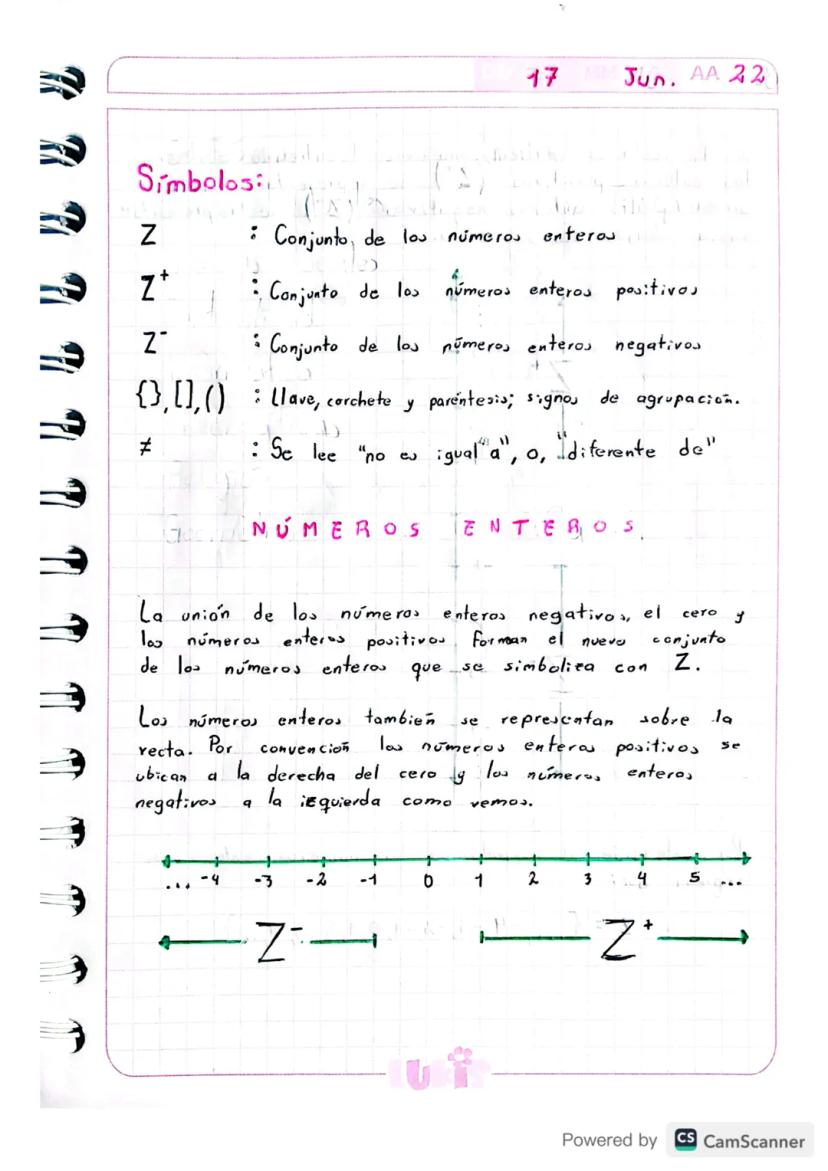 17 Jun. AA 22
Símbolos:
Z : Conjunto de los números enteros
Z⁺ : Conjunto de los números enteros positivos
Z⁻ : Conjunto de los números enteros negativos
{}, [], () : Llave, corchete y paréntesis; signos de agrupación.
≠ : Se lee "no es igual "a", o, "diferente de"
NÚMEROS ENTEROS.
La unión de los números enteros negativos, el cero y
los números enteros positivos forman el nuevo conjunto
de los números enteros que se simboliza con Z.
Los números enteros también se representan sobre la
recta. Por convención los números enteros positivos se
ubican a la derecha del cero y los números enteros
negativos a la izquierda como vemos.
... -4 -3 -2 -1 0 1 2 3 4 5 ...
Z⁻ Z⁺
Powered by CS CamScanner